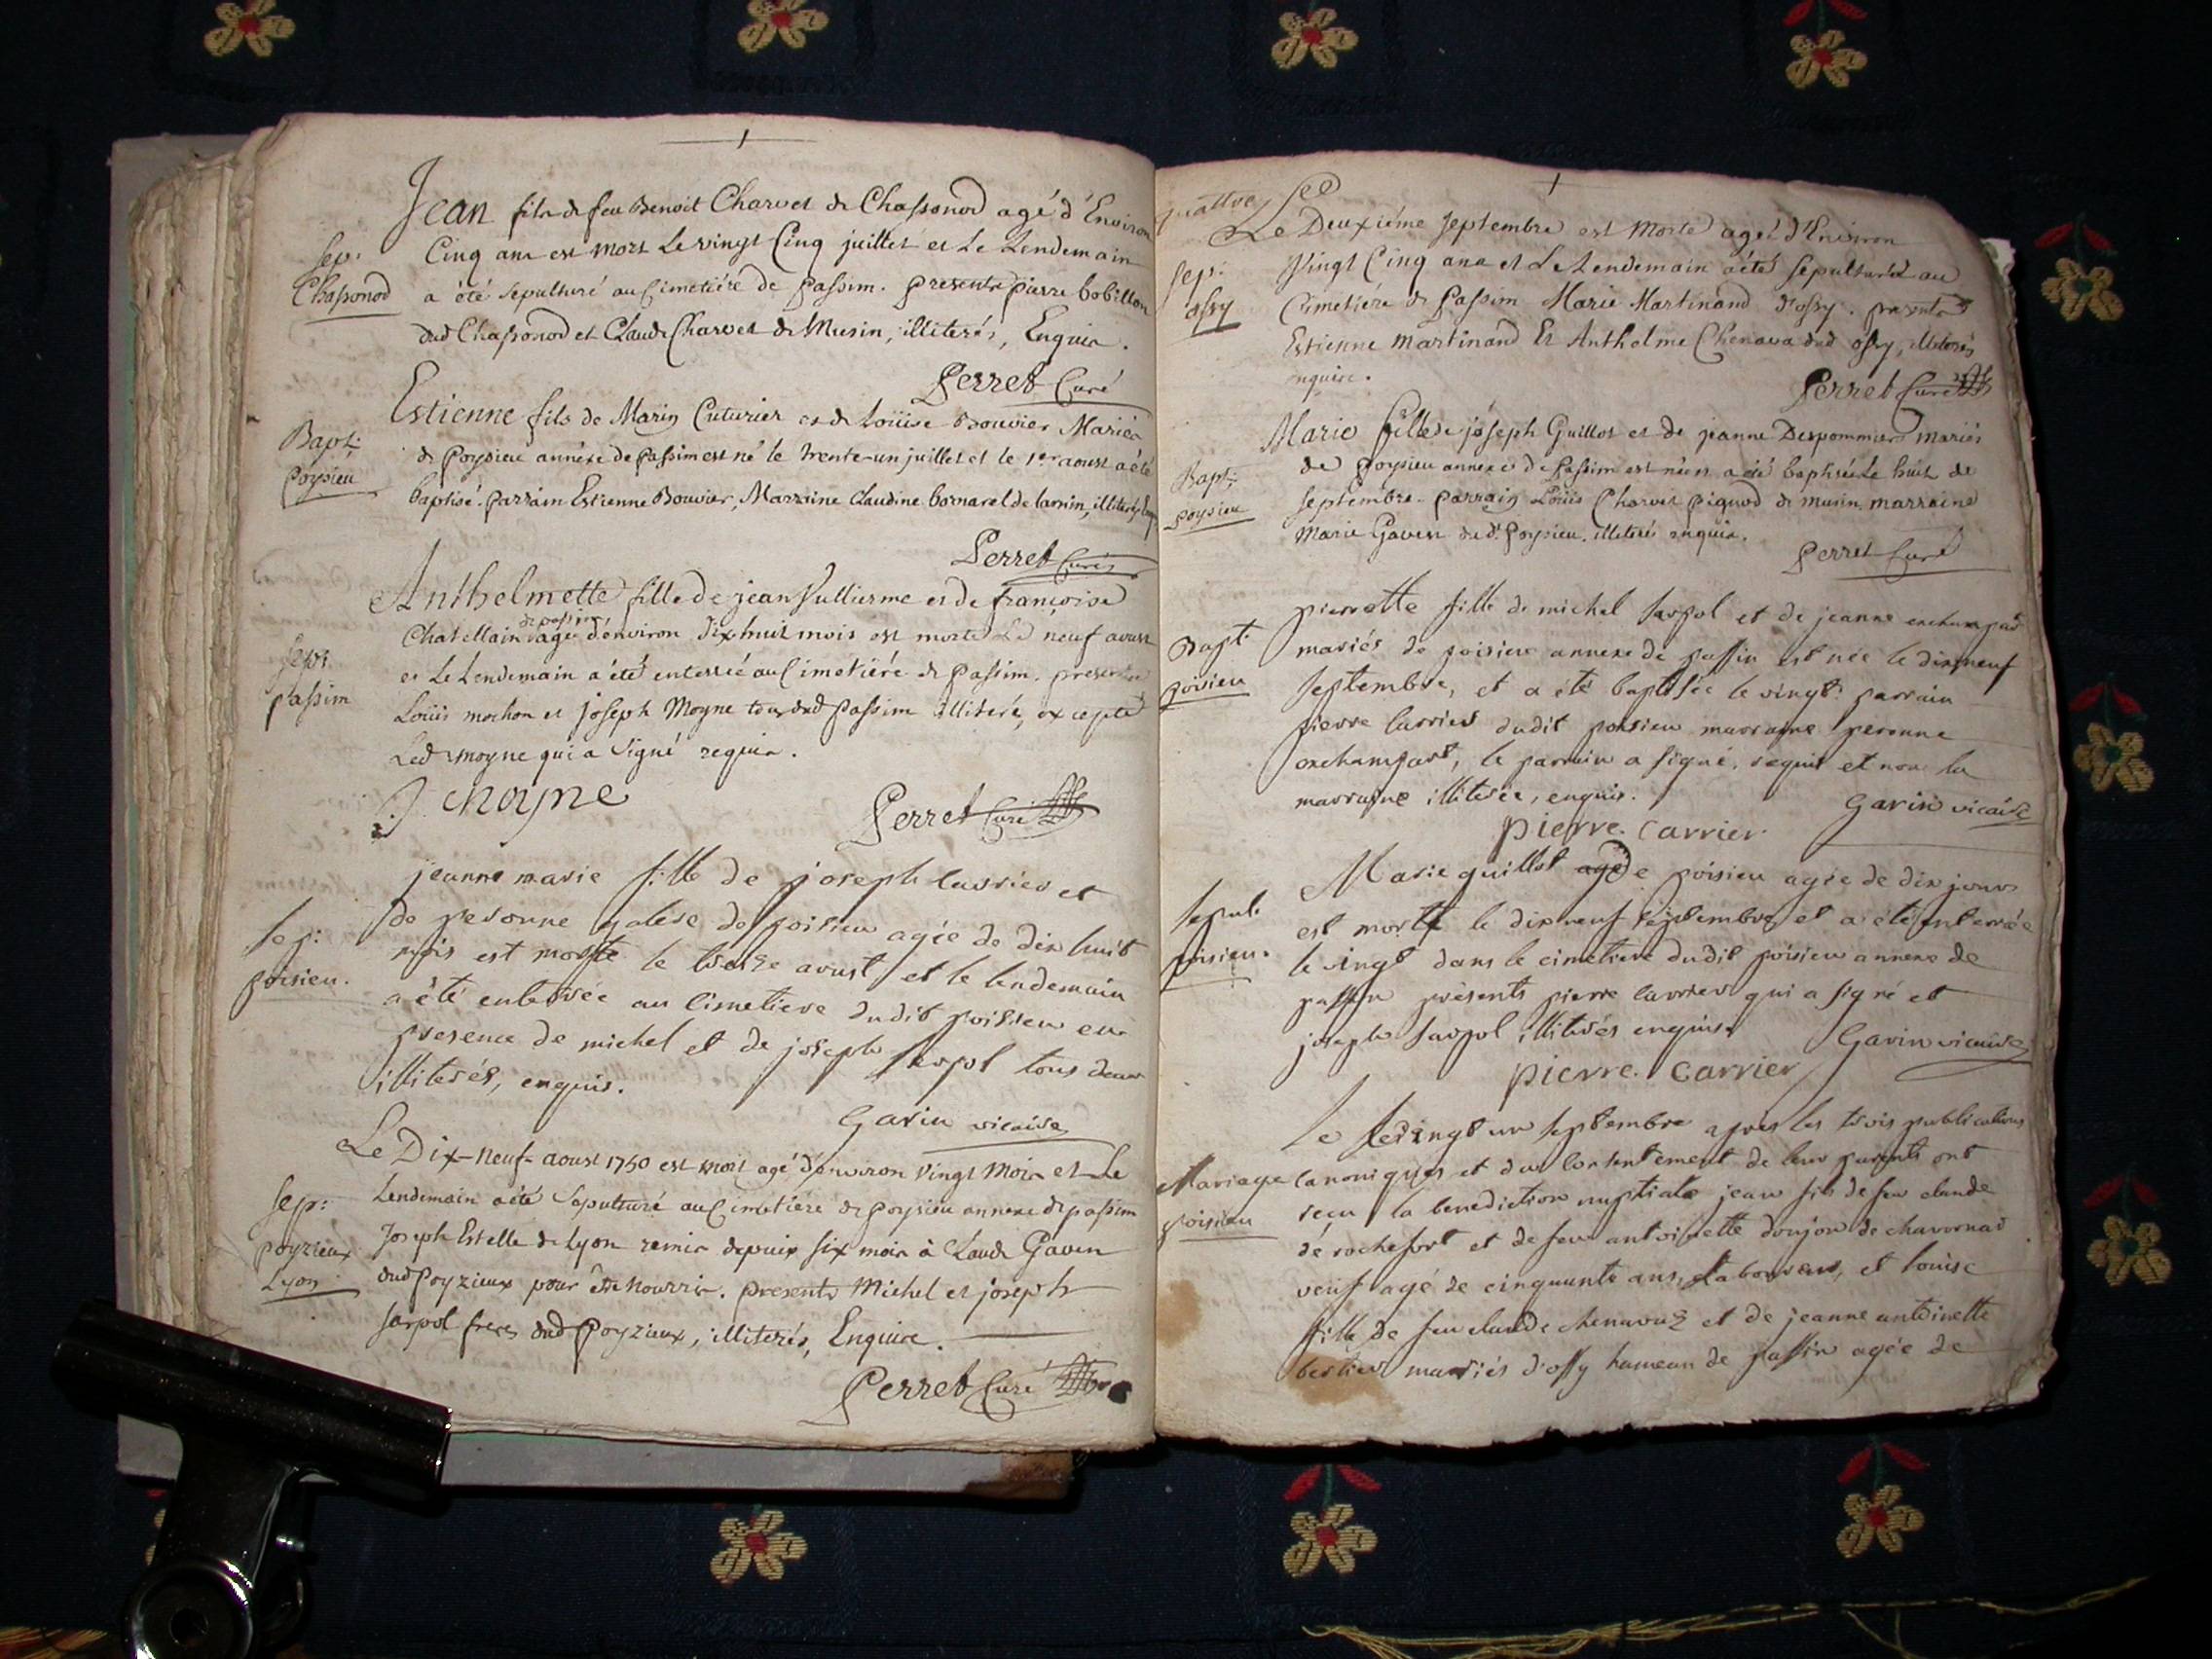 Jean fils de feu Benoit Charvet de Chassonod agé d'Environ
Sep:
Chassonod
Cinq ans est mort Le vingt Cinq juillet et Le Lendemain
a été sepulturé au Cimetiére de Passim. presents pierre bobillon
dud Chassonod et Claude Charvet de Musin, illiterés, Enquis.
Perret Curé
Estienne fils de Marin Cuturier et de Loüise Bouvier Mariés
Bapt:
Poysieu
de Poysieu annéxe de Passim est né le trente-un juillet et le 1er aoust a été
baptisé. parrain Estienne Bouvier, Marraine Claudine bornarel de illiterés
Perret Curé
Anthelmette fille de jean Vullierme et de françoise
Sep:
passim
Chatellain de passim agée d'environ dix huit mois est morte Le neuf aoust
et Le Lendemain a été enterrée au Cimetiére de Passim. presents
Loüis mochon et joseph Moyne tous dud Passim illiteré, excepté
Led moyne qui a signé requis.
J. moyne
Perret Curé
jeanne marie fille de joseph carrier et
Sep:
poisieu.
de peronne de poisieu agée de dix huit
mois est morte le treize aoust et le lendemain
a été enterrée au cimetiere dudit poisieu en
presence de michel et de joseph sarpol tous deux
illiterés, enquis.
Gavin vicaire
Le Dix-neuf aoust 1760 est mort agé d'environ vingt Mois et Le
Sep:
Poyzieux
Lyon
Lendemain a été Sepulturé au Cimetiére de Poysieu annexe de passim
Joseph Estelle de Lyon remis depuis six mois à Claude Gaven
dud Poyzieux pour être nourris. presents Michel et joseph
sarpol freres dud Poyzieux, illiterés, Enquis.
Perret Curé
quattre
Le Deuxiéme Septembre est Morte agée d'Environ
Sep:
ossy
Vingt Cinq ans et Le Lendemain a été sepulturée au
Cimetiére de Passim Marie Martinand d'ossy. presents
Estienne Martinand Et Anthelme Chenava dud ossy, illiterés
enquis.
Perret Curé
Marie fille de jóseph Guillot et de jeanne Despommiers mariés
Bapt:
poysieu
de Poysieu annéxe de Passim est née et a été baptisée Le huit de
Septembre. parrain Loüis Charvet pignod de musin marraine
Marie Gaven du d. Poysieu. illiterés enquis.
Perret Curé
pierrette fille de michel sarpol et de jeanne
Bapt:
poisieu
mariés de poisieu annexe de passin est née le dixneuf
Septembre, et a été baptisée le vingt: parrain
pierre carrier dudit poisieu marraine peronne
le parrain a signé, requis et non la
marraine illiterée, enquis.
Gavin vicaire
pierre. carrier.
Marie guillot agé de poisieu agée de dix jours
Sepul:
poisieu.
est morte le dixneuf septembre et a été enterrée
le vingt dans le cimetiere dudit poisieu annexe de
passin présents pierre carrier qui a signé et
joseph sarpol illiterés enquis.
Gavin vicaire
pierre. carrier
Le vingt un septembre apres les trois publications
Mariage
poisieu
canoniques et du consentement de leur parents ont
reçu la benediction nuptiale jean fils de feu claude
de rochefort et de feu antoinette doujon de chavornad
veuf agé de cinquante ans, laboureur, et louise
fille de feu claude chenavaz et de jeanne antoinette
bertier mariés d'ossy hameau de passin agée de